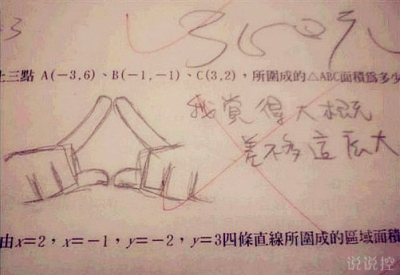 3
350元
上三點 A(-3,6)、B(-1,-1)、C(3,2),所圍成的△ABC面積為多少
我覺得大概
差不多這麼大
由x=2,x=-1,y=-2,y=3四條直線所圍成的區域面積
说说控